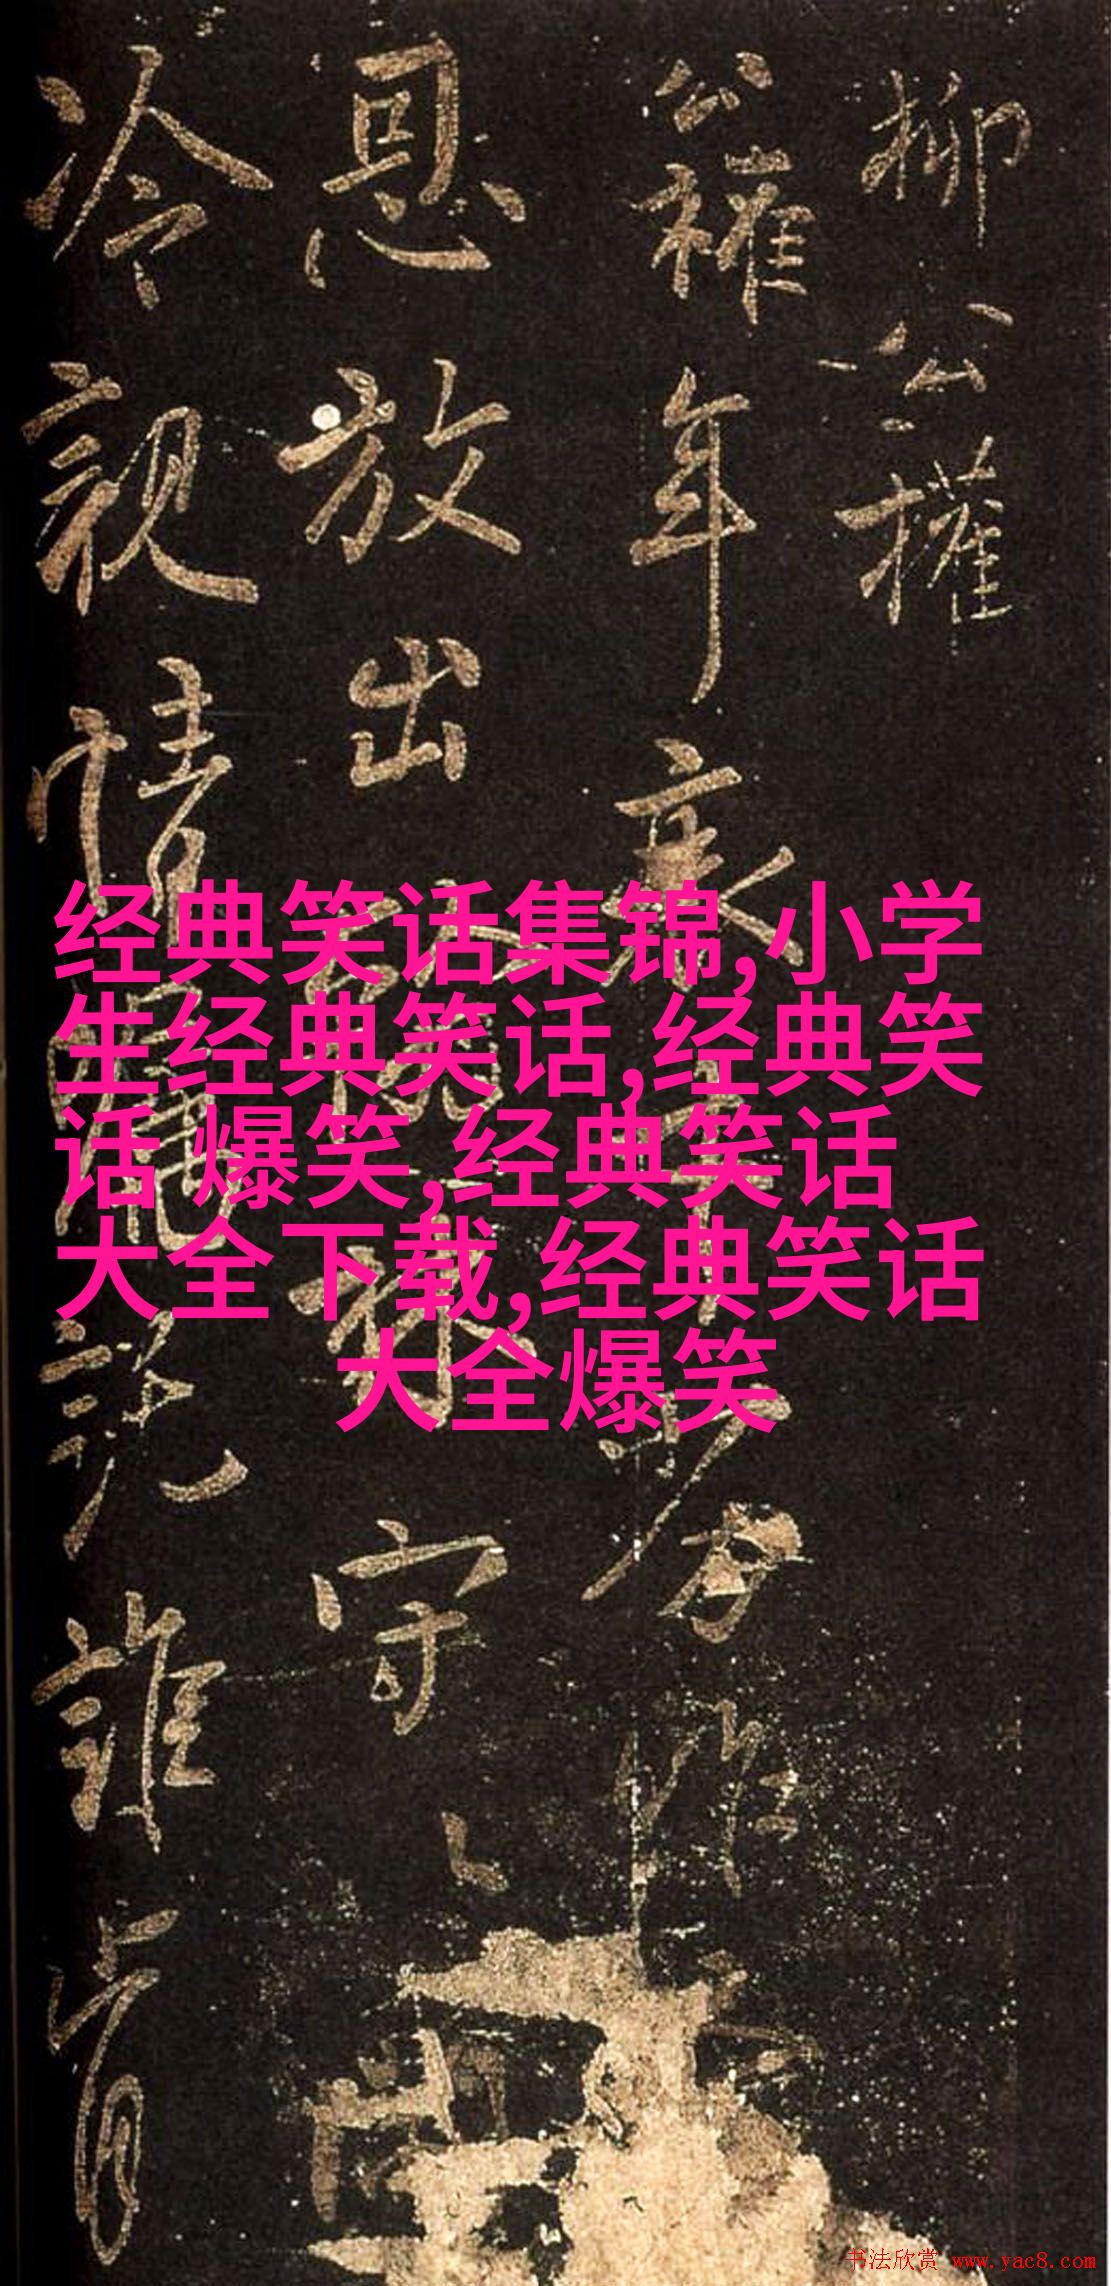 柳公權
公權年衰才劣昨
恩放出翰林守
冷親情囑託誰肯
经典笑话集锦,小学
生经典笑话,经典笑
话 爆笑,经典笑话
大全下载,经典笑话
大全爆笑
书法欣赏 www.yac8.com